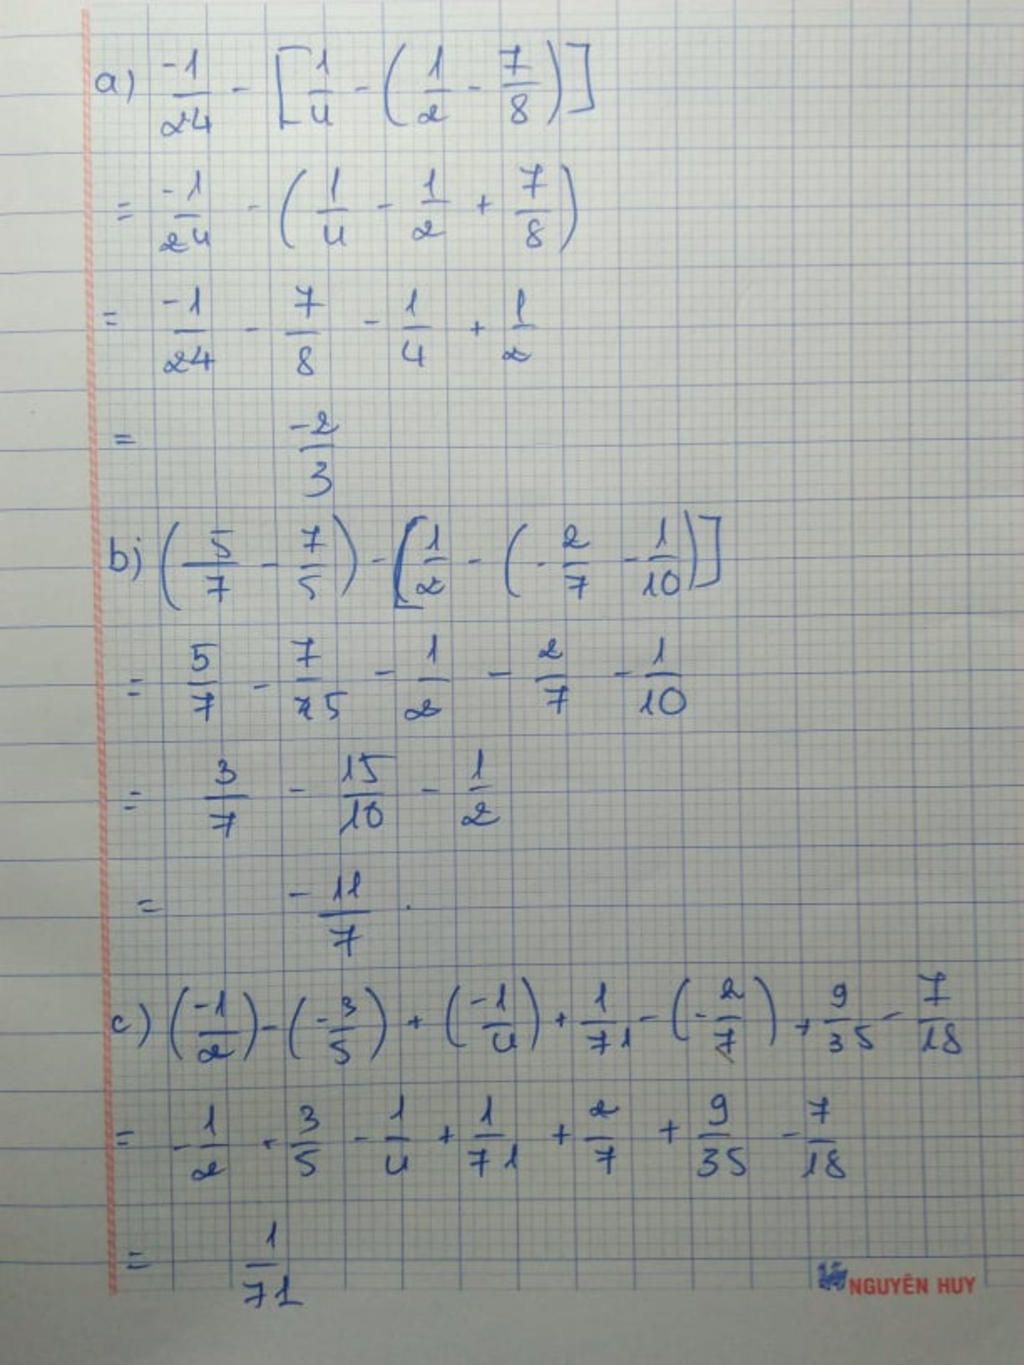 a) -1/24 - [1/4 - (1/2 - 7/8)]
= -1/24 - (1/4 - 1/2 + 7/8)
= -1/24 - 7/8 - 1/4 + 1/2
= -2/3
b) (5/7 - 7/5) - [1/2 - (-2/7 - 1/10)]
= 5/7 - 7/5 - 1/2 - 2/7 - 1/10
= 3/7 - 15/10 - 1/2
= -11/7
c) (-1/2) - (-3/5) + (-1/4) + 1/71 - (-2/7) + 9/35 - 7/18
= -1/2 + 3/5 - 1/4 + 1/71 + 2/7 + 9/35 - 7/18
= 1/71
NGUYÊN HUY